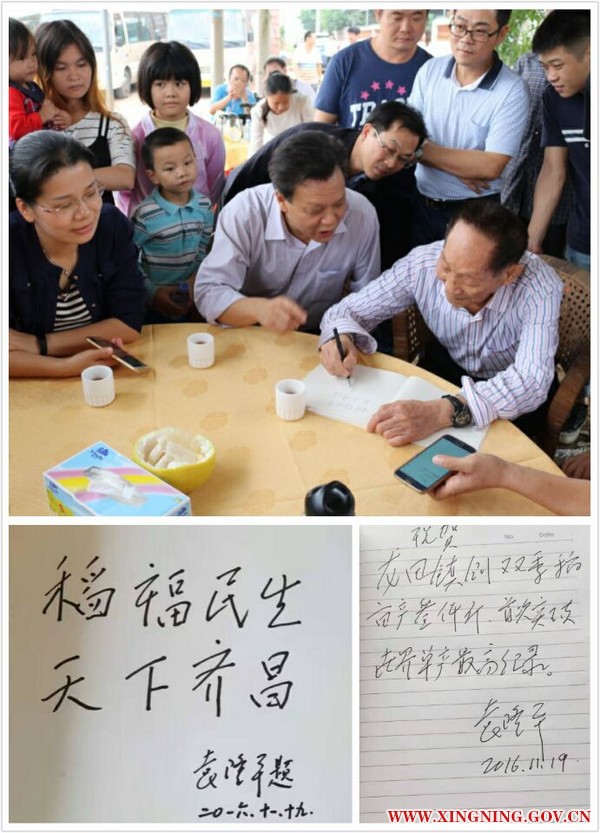 稻福民生
天下齐昌
袁隆平题
二〇一六.十一.十九.
No Date
祝贺
龙田镇创双季稻
亩产叁仟斤、首次突破
世界单产最高纪录。
袁隆平
2016.11.19.
WWW.XINGNING.GOV.CN